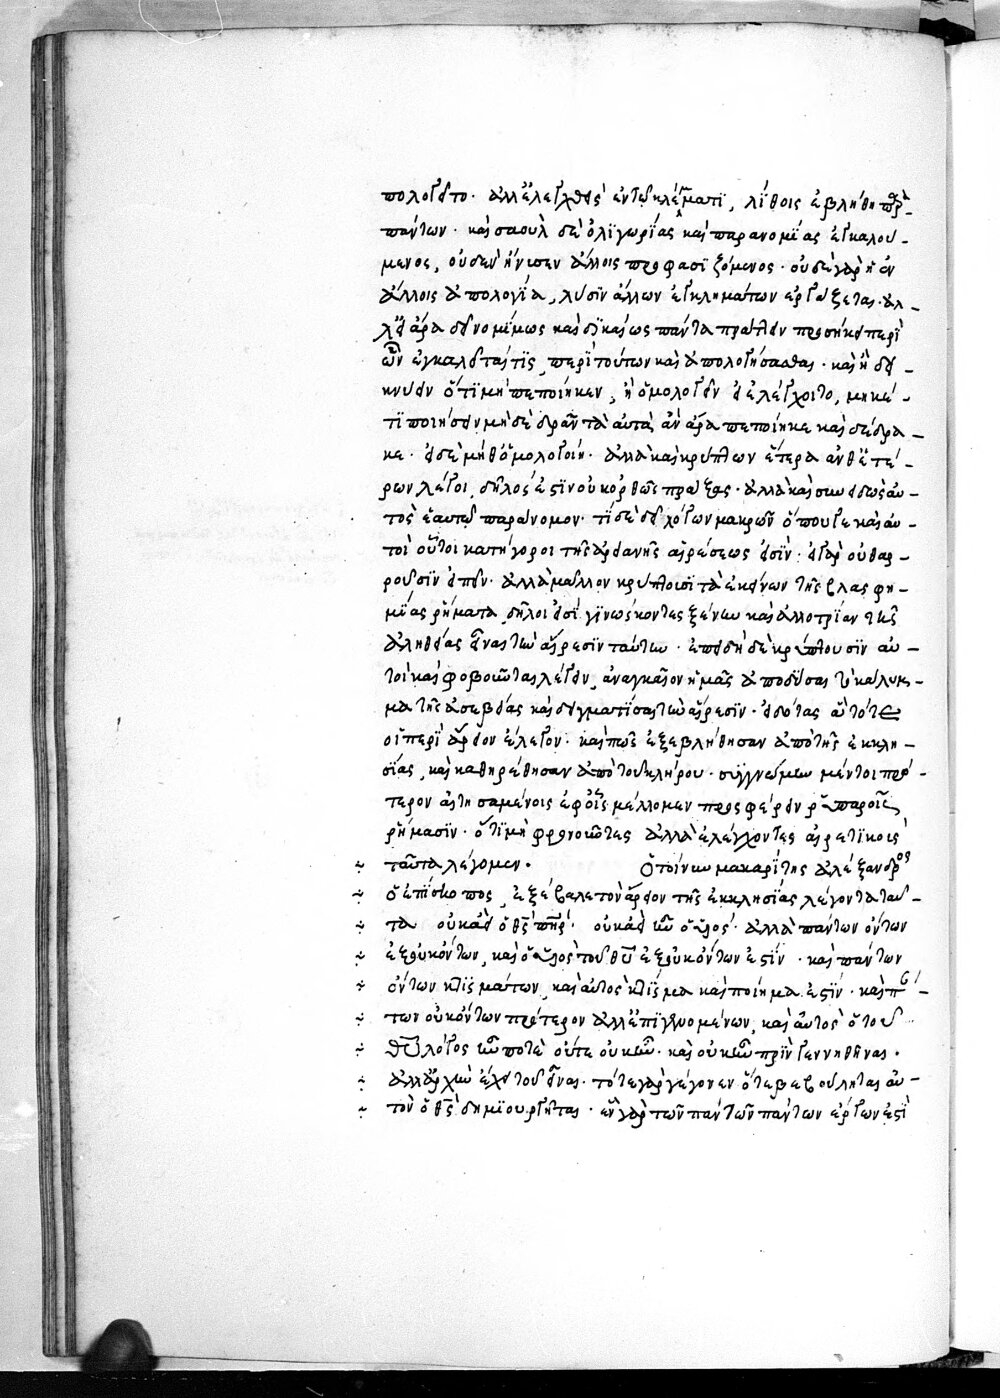 πολογεῖτο· ἀλλ' ἐλεγχθεὶς ἐν τῷ κλέμματι, λίθοις ἐβλήθη παρὰ
πάντων· καὶ σαοὺλ δὲ ὀλιγωρίας καὶ παρανομίας ἐγκαλού-
μενος, οὐδὲν ἤνυσεν ἄλλοις προφασιζόμενος· οὐδὲ γὰρ ἡ ἐν
ἄλλοις ἀπολογία, λύσιν ἄλλων ἐγκλημάτων ἐργάζεται· ἀλ-
λ' εἰ ἄρα δεῖ νομίμως καὶ δικαίως πάντα πράττειν προσήκει περὶ
ὧν ἐγκαλεῖταί τις, περὶ τούτων καὶ ἀπολογήσασθαι· καὶ ἢ δει-
κνύειν ὅτι μὴ πεποίηκεν, ἢ ὁμολογεῖν εἰ ἐλέγχοιτο, μηκέ-
τι ποιήσειν μηδὲ δρᾶν τὰ αὐτὰ ἂν ἄρα πεποίηκε καὶ δέδρα-
κε· εἰ δὲ μὴ θ' ὁμολογοίη· ἀλλὰ καὶ κρύπτων ἕτερα ἀνθ' ἑτέ-
ρων λέγοι, δῆλός ἐστιν οὐκ ὀρθῶς πράξας· ἀλλὰ καὶ συνειδὼς αὐ-
τὸς ἑαυτῷ παράνομον· τί δὲ δεῖ λόγων μακρῶν ὅπου γε καὶ αὐ-
τοὶ οὗτοι κατήγοροι τῆς ἀρειανῆς αἱρέσεως εἰσίν· εἰ γὰρ οὐ θαρ-
ροῦσιν εἰπεῖν· ἀλλὰ μᾶλλον κρύπτοισι τὰ ἐκείνων τῆς βλασφη-
μίας ῥήματα, δῆλοι εἰσὶ γινώσκοντες ξένην καὶ ἀλλοτρίαν τῆς
ἀληθείας εἶναι τὴν αἵρεσιν ταύτην· ἐπειδὴ δὲ κρύπτουσιν αὐ-
τοὶ καὶ φοβοῦνται λέγειν, ἀναγκαῖον ἡμᾶς ἀποδῦσαι τὸ κάλυμ-
μα τῆς ἀσεβείας καὶ δειγματίσαι τὴν αἵρεσιν· εἰδότας ἃ τότε
οἱ περὶ ἄρειον ἔλεγον· καὶ πῶς ἐξεβλήθησαν ἀπὸ τῆς ἐκκλη-
σίας, καὶ καθηρέθησαν ἀπὸ τοῦ κλήρου· συγγνώμην μέντοι πρό-
τερον αἰτησαμένοις ἐφ' οἷς μέλλομεν προσφέρειν ῥυπαροῖς
ῥήμασιν· ὅτι μὴ φρονοῦντες ἀλλ' ἐλέγχοντες αἱρετικοὺς
ταῦτα λέγομεν· Ὁ τοίνυν μακαρίτης ἀλέξανδρος
ὁ ἐπίσκοπος, ἐξέβαλε τὸν ἄρειον τῆς ἐκκλησίας λέγοντα ταῦ-
τα οὐκ ἀεὶ ὁ θς πηρ· οὐκ ἀεὶ ἦν ὁ υἱός· ἀλλὰ πάντων ὄντων
ἐξ οὐκ ὄντων, καὶ ὁ υἱὸς τοῦ θυ ἐξ οὐκ ὄντων ἐστίν· καὶ πάντων
ὄντων κτισμάτων, καὶ αὐτὸς κτίσμα καὶ ποίημα ἐστίν· καὶ πάν-
των οὐκ ὄντων πρότερον ἀλλ' ἐπιγενομένων, καὶ αὐτὸς ὁ τοῦ
θυ λόγος ἦν ποτὲ ὅτε οὐκ ἦν· καὶ οὐκ ἦν πρὶν γεννηθῆναι·
ἀλλ' ἀρχὴν ἔχει τοῦ εἶναι· τότε γὰρ γέγονεν ὅτε βεβούληται αὐ-
τὸν ὁ θς δημιουργῆσαι· ἓν γὰρ τῶν πάντων πάντων ἔργων ἐστὶ